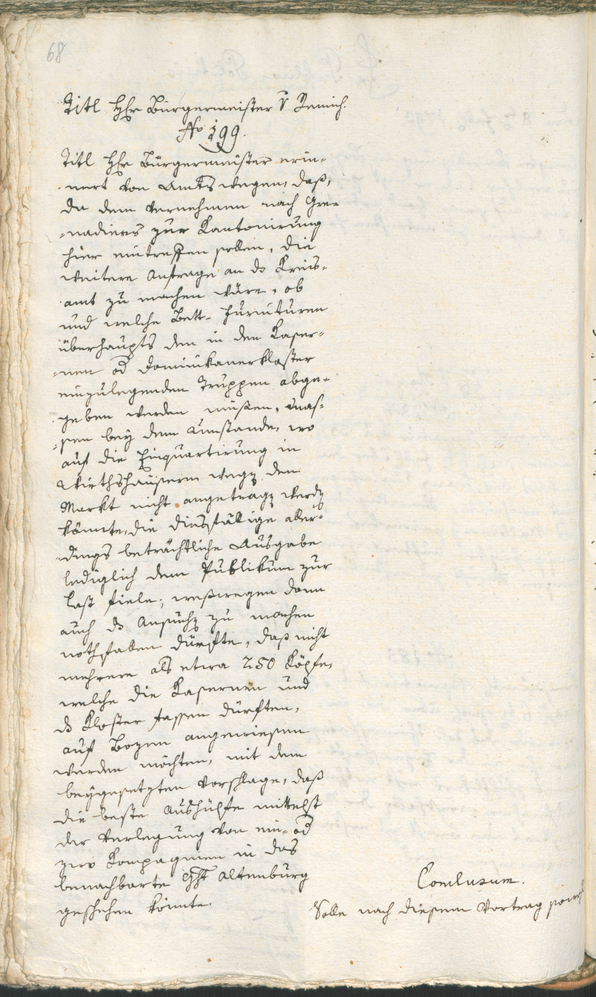 68
Titl Hr Bürgermeister v Remich.
No 199.
Titl Hr Bürgermeister erin-
nert von Amts wegen, daß,
da dem Vernehmen nach Gre-
nadiers zur Kantonirung
hier eintreffen sollen, die
weitere Anfrage an ds Kreis-
amt zu machen wäre, ob
und welche Bett-Furnituren
überhaupts den in den Kaser-
nen od Dominikanerkloster
einzulegenden Truppen abge-
geben werden müßen, mas-
sen bey dem Umstande, wo
auf die Einquartierung in
Wirthshäusern wegz dem
Markt nicht angetragz werdz
könnte, die diesfällige aller-
dings beträchtliche Ausgabe
lediglich dem Publikum zur
Last fiele; weßwegen dann
auch ds Ansuchz zu machen
nothfallen dürfte, daß nicht
mehrere als etwa 250 Köpfe,
welche die Kasernen und
ds Kloster fassen dürften,
auf Bozen angewiesen
werden möchten, mit dem
beygesetzten Vorschlage, daß
die beste Aushülfe mittelst
der Verlegung von ein- od
zwo Kompagnien in das
benachbarte Ght Altenburg
geschehen könnte.
Conclusum.
Solle nach diesem Vortrag